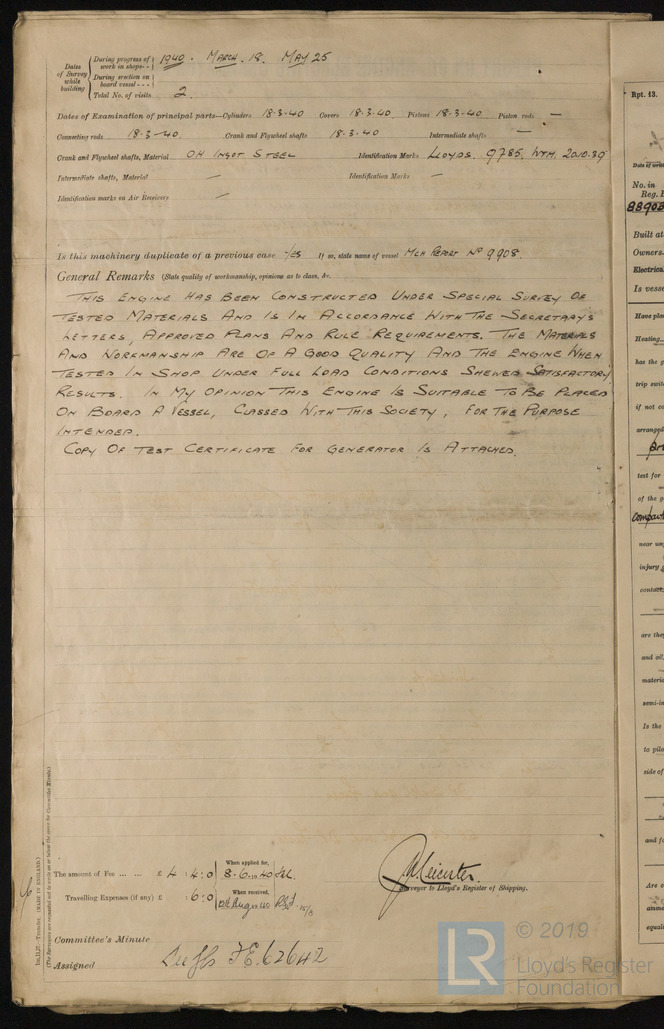 Dates of Survey while building
During progress of work in shops - - 1940. MARCH. 18. MAY 25
During erection on board vessel - - -
Total No. of visits 2.
Dates of Examination of principal parts—Cylinders 18-3-40 Covers 18.3.40. Pistons 18-3-40 Piston rods —
Connecting rods 18-3-40. Crank and Flywheel shafts 18.3.40 Intermediate shafts —
Crank and Flywheel shafts, Material OH INGOT STEEL Identification Marks LLOYDS. 9785. WTM. 20.10.39
Intermediate shafts, Material — Identification Marks —
Identification marks on Air Receivers —
Is this machinery duplicate of a previous case YES If so, state name of vessel MCH REPORT No 9908.
General Remarks (State quality of workmanship, opinions as to class, &c.
THIS ENGINE HAS BEEN CONSTRUCTED UNDER SPECIAL SURVEY OF
TESTED MATERIALS AND IS IN ACCORDANCE WITH THE SECRETARY'S
LETTERS, APPROVED PLANS AND RULE REQUIREMENTS. THE MATERIALS
AND WORKMANSHIP ARE OF A GOOD QUALITY AND THE ENGINE WHEN
TESTED IN SHOP UNDER FULL LOAD CONDITIONS SHEWED SATISFACTORY
RESULTS. IN MY OPINION THIS ENGINE IS SUITABLE TO BE PLACED
ON BOARD A VESSEL, CLASSED WITH THIS SOCIETY, FOR THE PURPOSE
INTENDED.
COPY OF TEST CERTIFICATE FOR GENERATOR IS ATTACHED.
The amount of Fee ... ... £ 4 : 4 : 0 When applied for, 8.6.1940
Travelling Expenses (if any) £ : 6 : 0 When received, Aug 1940 15/8
Leicester.
Surveyor to Lloyd's Register of Shipping.
Committee's Minute
Assigned See F.E. 62642
(MADE IN ENGLAND.)
(The Surveyors are requested not to write on or below the space for Committee's Minute.)
Rpt. 13.
No. in
Reg. B
88903
Built at
Owners.
Electrical
Is vesse
Have plan
Heating
has the g
trip swit
if not co
arranged
test for
of the g
compact
near un
injury
contact
are they
and oil,
materia
semi-in
Is the
to pilo
side of
and fo
Are
amme
equali
© 2019
LR
Lloyd's Register
Foundation